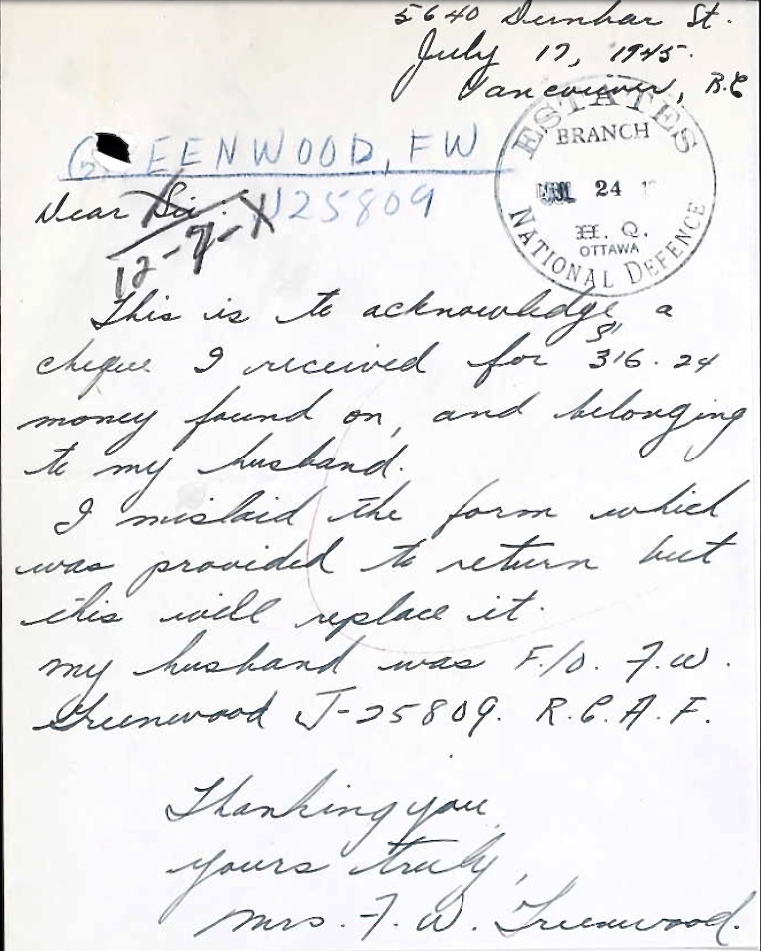 5640 Dunbar St.
July 17, 1945.
Vancouver, B.C
ESTATES
BRANCH
JUL 24 1
H. Q.
OTTAWA
NATIONAL DEFENCE
GREENWOOD, FW
J25809
Dear Sir.
12-7-X
This is to acknowledge a
cheque I received for $316.24
money found on, and belonging
to my husband.
I mislaid the form which
was provided to return but
this will replace it.
my husband was F/O. F.W.
Greenwood J-25809. R.C.A.F.
Thanking you
yours truly,
Mrs. F. W. Greenwood.